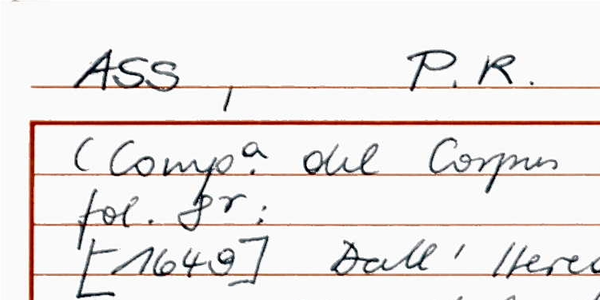 ASS, P.R.
(Comp.ª del Corpus
fol. 8r:
[1649] Dall'